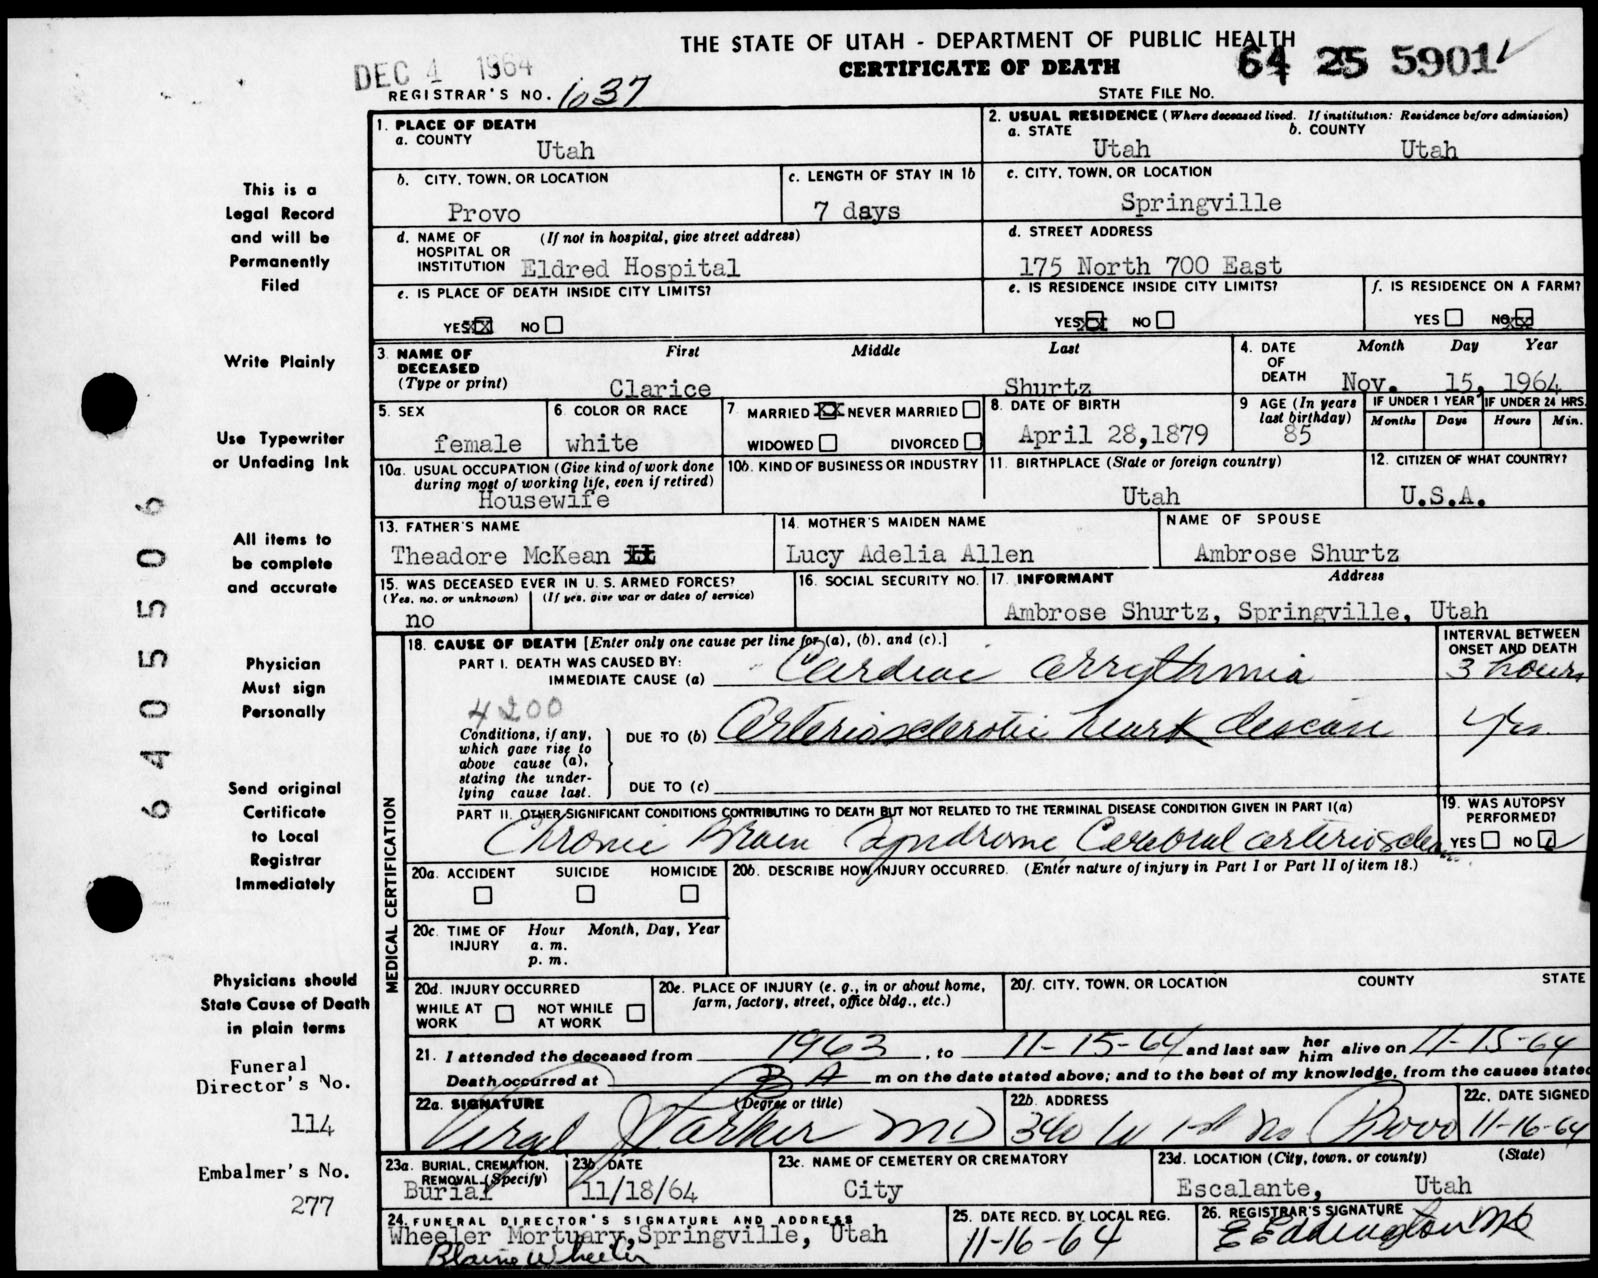 THE STATE OF UTAH - DEPARTMENT OF PUBLIC HEALTH
CERTIFICATE OF DEATH
64 25 5901 ✓
DEC 4 1964
REGISTRAR'S NO. 637
STATE FILE NO.
1. PLACE OF DEATH
a. COUNTY
Utah
2. USUAL RESIDENCE (Where deceased lived. If institution: Residence before admission)
a. STATE b. COUNTY
Utah Utah
b. CITY, TOWN, OR LOCATION
Provo
c. LENGTH OF STAY IN 1b
7 days
c. CITY, TOWN, OR LOCATION
Springville
d. NAME OF HOSPITAL OR INSTITUTION (If not in hospital, give street address)
Eldred Hospital
d. STREET ADDRESS
175 North 700 East
e. IS PLACE OF DEATH INSIDE CITY LIMITS?
YES XX NO
e. IS RESIDENCE INSIDE CITY LIMITS?
YES XX NO
f. IS RESIDENCE ON A FARM?
YES NO XX
3. NAME OF DECEASED (Type or print)
First Middle Last
Clarice Shurtz
4. DATE OF DEATH
Month Day Year
Nov. 15, 1964
5. SEX
female
6. COLOR OR RACE
white
7. MARRIED XX NEVER MARRIED
WIDOWED DIVORCED
8. DATE OF BIRTH
April 28,1879
9. AGE (In years last birthday)
85
IF UNDER 1 YEAR
Months Days
IF UNDER 24 HRS.
Hours Min.
10a. USUAL OCCUPATION (Give kind of work done during most of working life, even if retired)
Housewife
10b. KIND OF BUSINESS OR INDUSTRY
11. BIRTHPLACE (State or foreign country)
Utah
12. CITIZEN OF WHAT COUNTRY?
U.S.A.
13. FATHER'S NAME
Theadore McKean II
14. MOTHER'S MAIDEN NAME
Lucy Adelia Allen
NAME OF SPOUSE
Ambrose Shurtz
15. WAS DECEASED EVER IN U. S. ARMED FORCES?
(Yes, no, or unknown) (If yes, give war or dates of service)
no
16. SOCIAL SECURITY NO.
17. INFORMANT Address
Ambrose Shurtz, Springville, Utah
MEDICAL CERTIFICATION
18. CAUSE OF DEATH [Enter only one cause per line for (a), (b), and (c).]
PART I. DEATH WAS CAUSED BY:
IMMEDIATE CAUSE (a) Cardiac arrythmia
INTERVAL BETWEEN ONSET AND DEATH
3 hours
4200
Conditions, if any, which gave rise to above cause (a), stating the underlying cause last.
DUE TO (b) Arteriosclerotic heart disease
yrs.
DUE TO (c)
PART II. OTHER SIGNIFICANT CONDITIONS CONTRIBUTING TO DEATH BUT NOT RELATED TO THE TERMINAL DISEASE CONDITION GIVEN IN PART I(a)
Chronic Brain Syndrome Cerebral
19. WAS AUTOPSY PERFORMED?
YES NO
20a. ACCIDENT SUICIDE HOMICIDE
20b. DESCRIBE HOW INJURY OCCURRED. (Enter nature of injury in Part I or Part II of item 18.)
20c. TIME OF INJURY Hour Month, Day, Year
a. m.
p. m.
20d. INJURY OCCURRED
WHILE AT WORK NOT WHILE AT WORK
20e. PLACE OF INJURY (e. g., in or about home, farm, factory, street, office bldg., etc.)
20f. CITY, TOWN, OR LOCATION COUNTY STATE
21. I attended the deceased from 1963, to 11-15-64 and last saw her him alive on 11-15-64
Death occurred at 3 A m on the date stated above; and to the best of my knowledge, from the causes stated
22a. SIGNATURE (Degree or title)
Virgil J Parker MD
22b. ADDRESS
340 W 1st No Provo
22c. DATE SIGNED
11-16-64
23a. BURIAL, CREMATION, REMOVAL, (Specify)
Burial
23b. DATE
11/18/64
23c. NAME OF CEMETERY OR CREMATORY
City
23d. LOCATION (City, town, or county) (State)
Escalante, Utah
24. FUNERAL DIRECTOR'S SIGNATURE AND ADDRESS
Wheeler Mortuary,Springville, Utah
Blaine Wheeler
25. DATE RECD. BY LOCAL REG.
11-16-64
26. REGISTRAR'S SIGNATURE
E Eddington MD
This is a
Legal Record
and will be
Permanently
Filed
Write Plainly
Use Typewriter
or Unfading Ink
All items to
be complete
and accurate
Physician
Must sign
Personally
Send original
Certificate
to Local
Registrar
Immediately
Physicians should
State Cause of Death
in plain terms
Funeral
Director's No.
114
Embalmer's No.
277
6405506